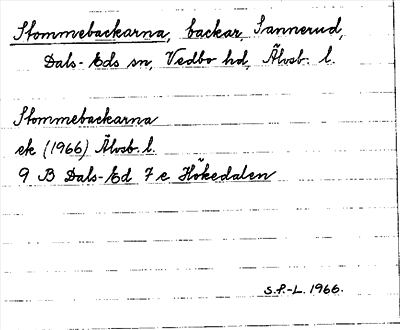 Stommebackarna, backar, Sannerud,
Dals-Eds sn, Vedbo hd, Älvsb. l.
Stommebackarna
ek (1966) Älvsb. l.
9 B Dals-Ed 7 e Hökedalen
S.P.-L. 1966.